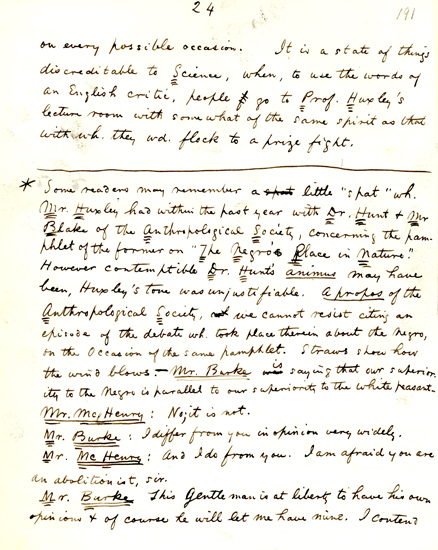 24
191
on every possible occasion. It is a state of things
discreditable to Science, when, to use the words of
an English critic, people go to Prof. Huxley's
lecture room with somewhat of the same spirit as that
with wh. they wd. flock to a prize fight.
* Some readers may remember a little "spat" wh.
Mr. Huxley had within the past year with Dr. Hunt & Mr
Blake of the Anthropological Society, concerning the pam-
phlet of the former on "The Negro's Place in Nature."
However contemptible Dr. Hunt's animus may have
been, Huxley's tone was unjustifiable. A propos of the
Anthropological Society, we cannot resist citing an
episode of the debate wh. took place therein about the Negro,
on the Occasion of the same pamphlet. Straws show how
the wind blows. — Mr. Burke is saying that our superior-
ity to the Negro is parallel to our superiority to the white peasant—
Mr. McHenry: No, it is not.
Mr. Burke: I differ from you in opinion very widely.
Mr. McHenry: And I do from you. I am afraid you are
an abolitionist, sir.
Mr. Burke This Gentleman is at liberty to have his own
opinions & of course he will let me have mine. I contend